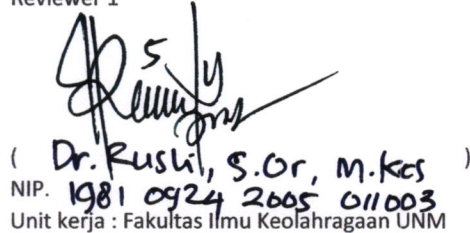 Reviewer 1
( Dr. Ruslil, S.Or, M.Kes )
NIP. 1981 0924 2005 011003
Unit kerja : Fakultas Ilmu Keolahragaan UNM